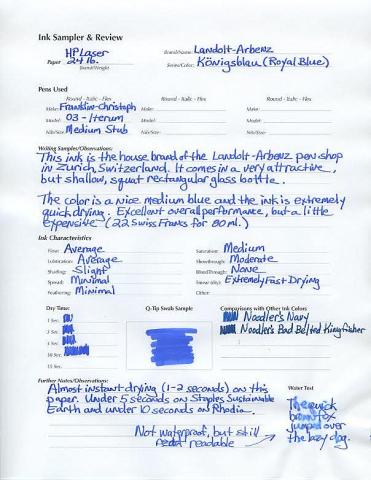 Ink Sampler & Review
HP Laser
Paper 24 lb.
Brand/Weight
Brand/Name: Landolt-Arbenz
Series/Color: Königsblau (Royal Blue)
Pens Used
Round - Italic - Flex Round - Italic - Flex Round - Italic - Flex
Make: Franklin-Christoph Make: Make:
Model: 03 - Iterum Model: Model:
Nib/Size: Medium Stub Nib/Size: Nib/Size:
Writing Samples/Observations:
This ink is the house brand of the Landolt-Arbenz pen shop
in Zurich, Switzerland. It comes in a very attractive,
but shallow, squat rectangular glass bottle.
The color is a nice medium blue and the ink is extremely
quick drying. Excellent overall performance, but a little
expensive (22 Swiss Francs for 80 ml.)
Ink Characteristics
Flow: Average Saturation: Medium
Lubrication: Average Showthrough: Moderate
Shading: Slight Bleedthrough: None
Spread: Minimal Extremely Fast Drying
Feathering: Minimal Other:
Dry Time: Q-Tip Swab Sample Comparisons with Other Ink Colors
1 Sec. Noodler's Navy
2 Sec. Noodler's Bad Belted Kingfisher
3 Sec.
4 Sec.
10 Sec.
15 Sec.
Further Notes/Observations: Water Test
Almost instant drying (1-2 seconds) on this
paper. Under 5 seconds on Staples Sustainable
Earth and under 10 seconds on Rhodia.
Not waterproof, but still
readable
The quick
brown fox
jumped over
the lazy dog.